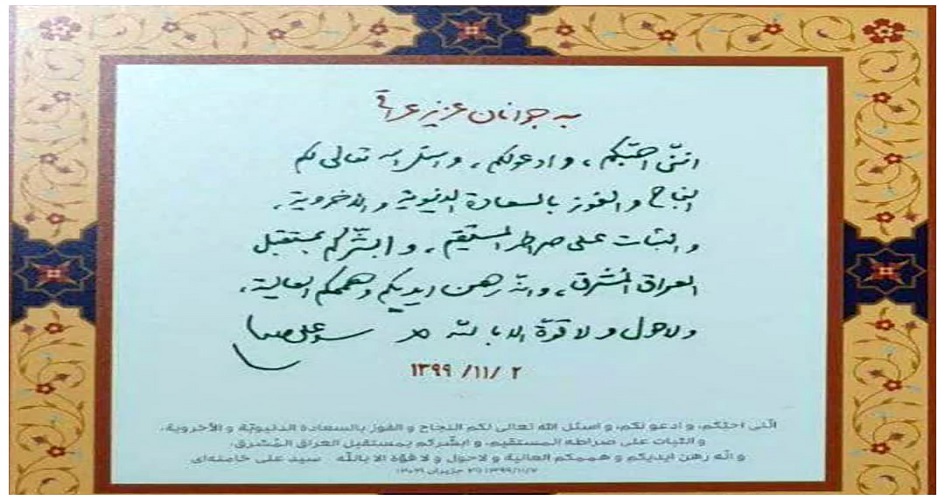 به جوانان عزیز عراق
اننّی احبّکم، و ادعولکم، و اسئل الله تعالی لکم
النجاح و الفوز بالسعادة الدنیویة و الاخرویة،
و الثبات علی صراطه المستقیم، و ابشّرکم بمستقبل
العراق المُشرق، و انّه رهن ایدیکم و هممکم العالیة،
ولاحول ولا قوّة الا بالله
۱۳۹۹ /۱۱/ ۲
انّنی احبّکم، و ادعو لکم، و اسئل الله تعالی لکم النجاح و الفوز بالسعادة الدنیویّة و الأخرویة،
و الثبات علی صراطه المستقیم، و ابشّرکم بمستقبل العراق المُشرق،
و انّه رهن ایدیکم و هممکم العالیة و لاحول و لا قوّة الا بالله سید علی خامنه‌ای